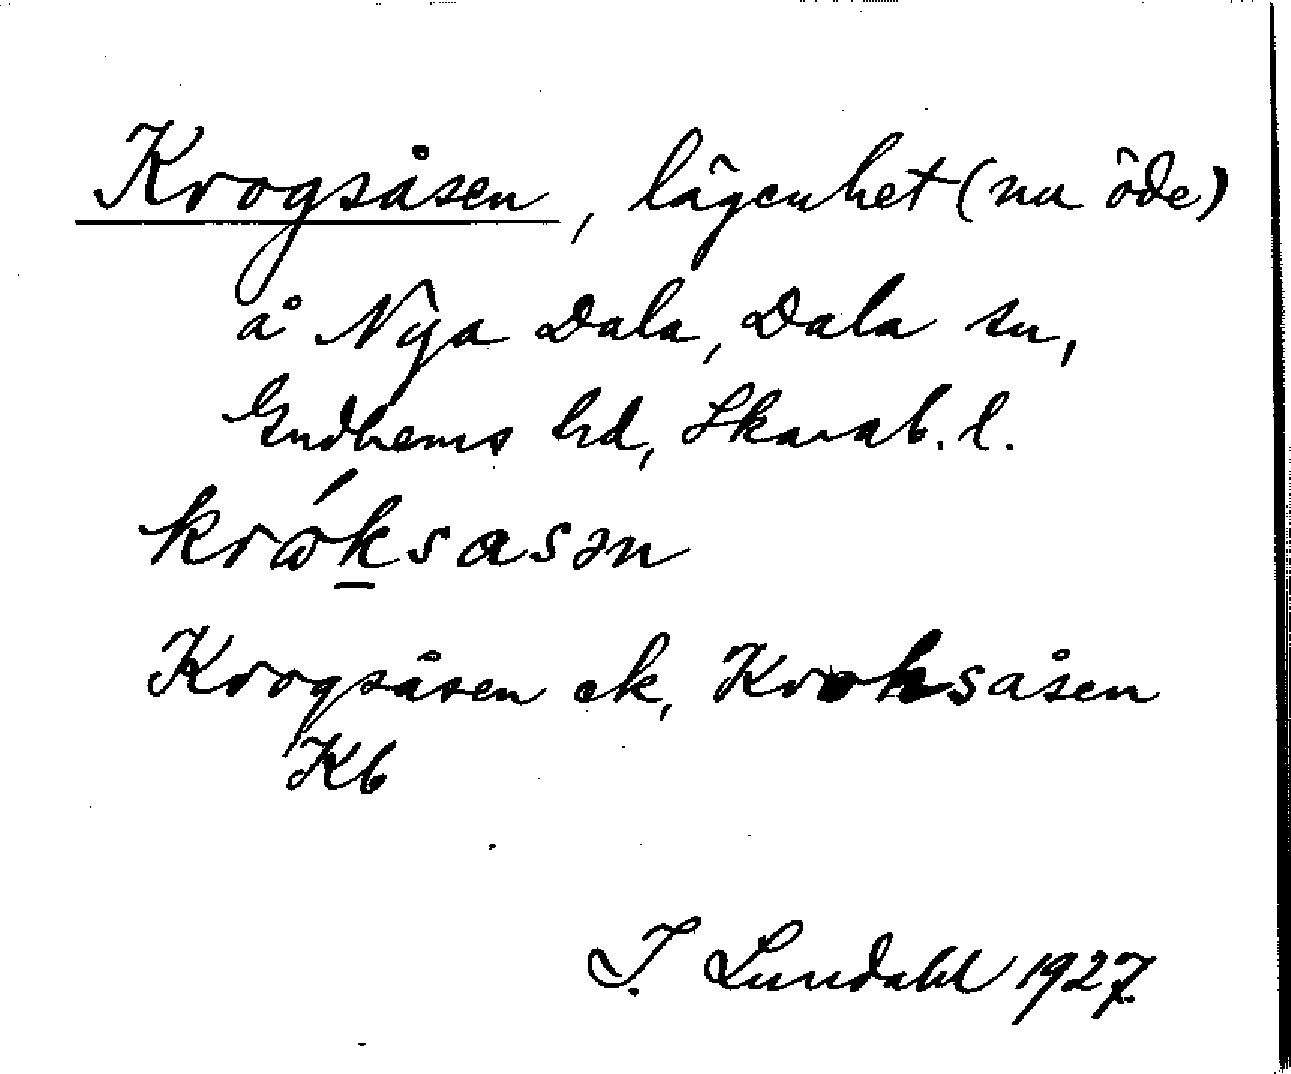 Krogsåsen, lägenhet (nu öde)
å Nya Dala, Dala sn,
Gudhems hd, Skarab. l.
krɷ́k̲sasən
Krogsåsen ek, Kroksåsen
Kb
I. Lundahl 1927.